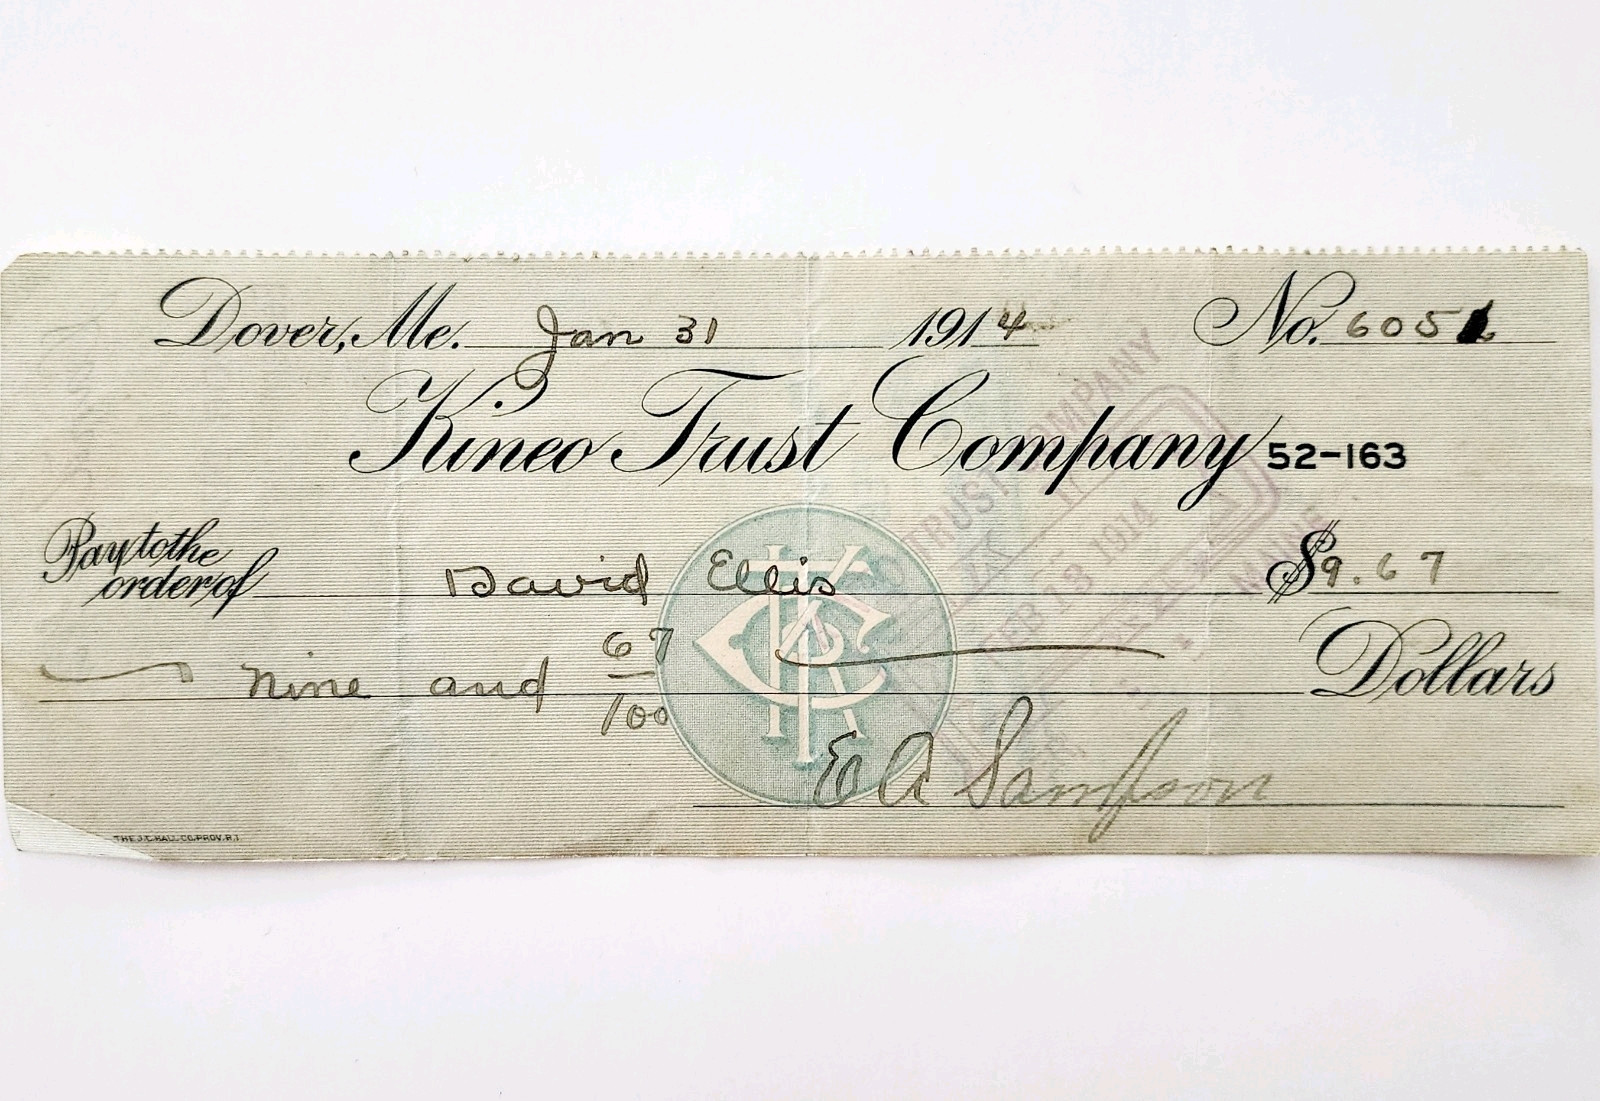 Dover, Me. Jan 31 1914 No. 605
Kineo Trust Company 52-163
Pay to the order of David Ellis $9.67
nine and 67/100 Dollars
E A Sampson
THE J.C. HALL CO. PROV. R.I.
TRUST COMPANY
FEB 13 1914
KTC